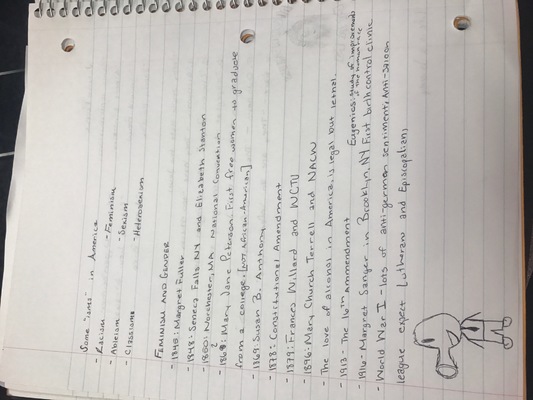 Some "isms" in America
- Racism - Feminism
- Ableism - Sexism
- Classism - Heterosexism
FEMINISM AND GENDER
- 1845: Margret Fuller
- 1848: Seneca Falls NY and Elizabeth Stanton
- 1850: Worchester, MA National Convention
- 1868: Mary Jane Peterson. First free women to graduate
from a college. [African-American]
- 1869: Susan B. Anthony
- 1878: Constitutional Amendment
- 1879: Frances Willard and WCTU
- 1896: Mary Church Terrell and NACW
- The love of alcohol in America, is legal but lethal.
- 1913- The 16th Ammendment
Eugenics: study of improvement
of the human race
- 1916- Margret Sanger in Brooklyn, NY First birth control clinic
- World War I - lots of anti-german sentiment, Anti-saloon
league expect Lutherans and Episcopalian.